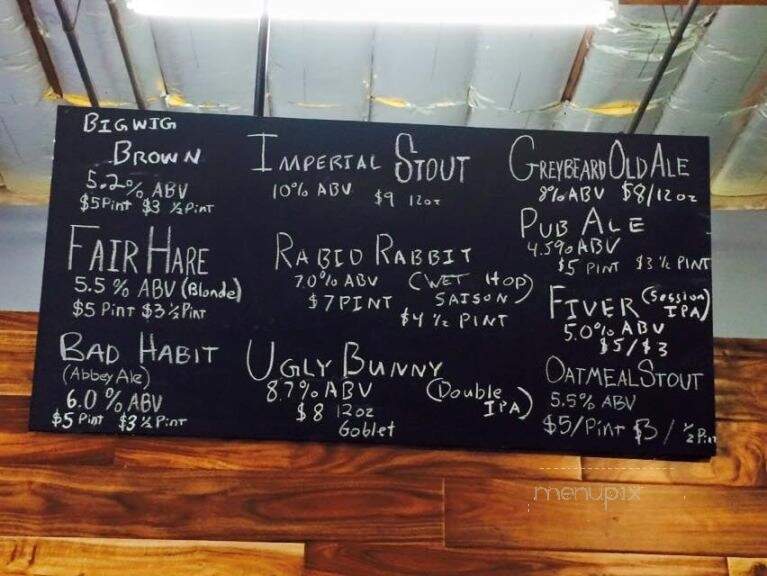 BIGWIG
BROWN
5.2% ABV
$5 Pint $3 ½ Pint
FAIR HARE
5.5 % ABV (Blonde)
$5 Pint $3 ½ Pint
BAD HABIT
(Abbey Ale)
6.0 % ABV
$5 Pint $3 ½ Pint
IMPERIAL STOUT
10% ABV $9 12oz
RABID RABBIT
7.0% ABV (WET HOP)
$7 PINT SAISON)
$4 ½ PINT
UGLY BUNNY
8.7% ABV (Double
$8 12oz IPA)
Goblet
GREYBEARD OLD ALE
8% ABV $8/12oz
PUB ALE
4.5% ABV
$5 PINT $3 ½ PINT
FIVER (Session
IPA)
5.0% ABV
$5/$3
OATMEAL STOUT
5.5% ABV
$5/Pint $3 / ½ Pint
menupix